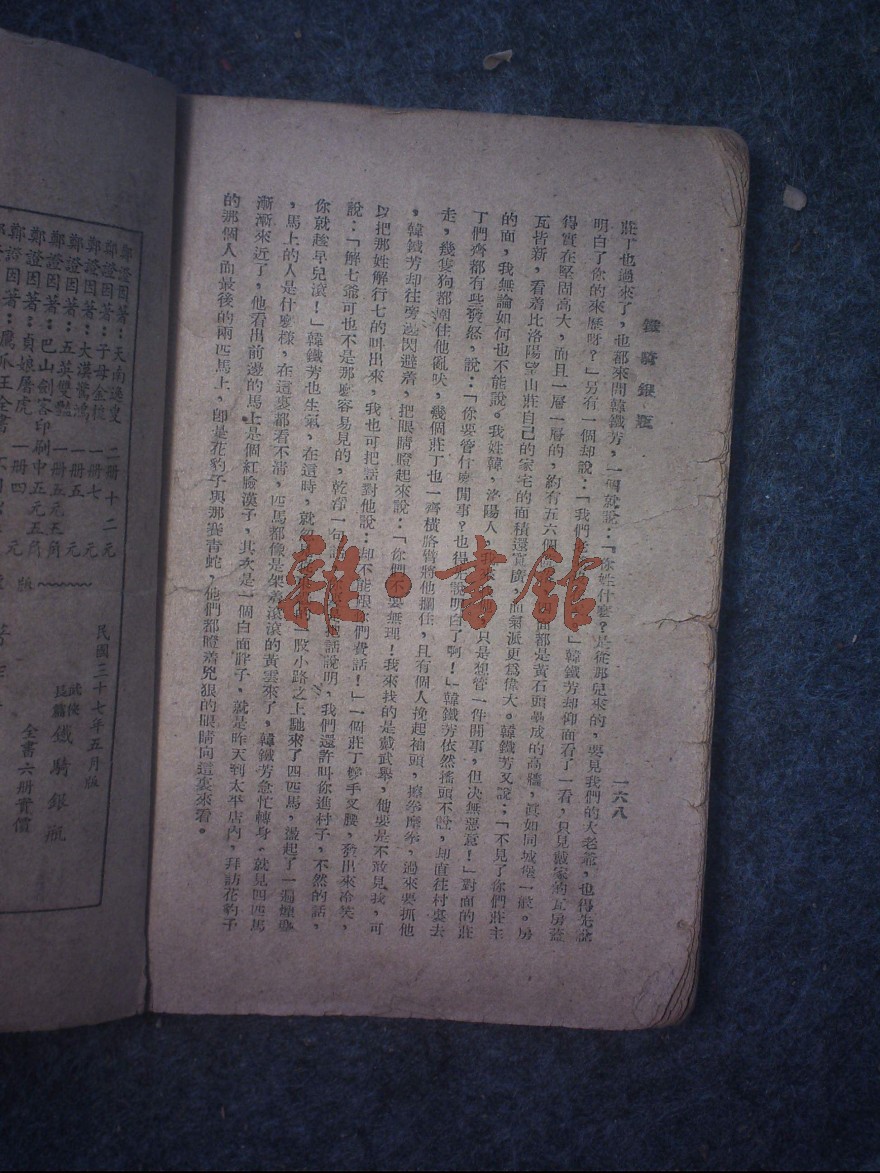 鐵騎銀瓶
一六八
莊丁也過來了，也都來問韓鐵芳，一個就說：「你姓什麼？是從那兒來的，要見我們的大老爺，也得先說
明白了你的來歷呀？」另有一個却說：「我們　　　」韓鐵芳却仰面看了一看，只見戴家的瓦房蓋
得實在堅固高大，而且一層一層的，約有五六個　　面都是黃石頭壘成的高牆，眞如同城堡一般。房
瓦皆新，看着比洛陽望山莊自己的家宅的面積還寬廣，而氣派更爲偉大。韓鐵芳又說：「不見了你們莊主
的面，我無論如何也不能說。我姓韓，洛陽人，　　　只是想管一件閒事，但決無惡意！」對面的莊
丁們齊都有些發怒，說：「你要管什麼閒事？也得先說明白了啊！」韓鐵芳依然搖頭不說，却直往村裏去
走，幾隻狗都圍住他亂吠，幾個莊丁也一齊橫胳臂將他攔住，且有個人挽起袖頭，擦拳摩拳，過來要抓他
，韓鐵芳却往旁邊閃避着，把眼睛瞪起來說：「你們不要無理！我來找的是戴武舉，他要是不敢見我，可
以把那姓解行七的叫出來，我也可把話對他說：却不能跟你們費話！」一個莊丁拶手叉腰，發出來冷笑，
說：「解七爺可也不是那麼容易見的，乾脆一句話　　把話說明，我們還許叫你進村子，不然的話，
你就趁早兒滾！」韓鐵芳也生氣，在這時，就忽　　一股小路之上馳來了四匹馬，盪起了一遍煙塵
，馬上的人是什麼樣，在這裏都看不清，四匹馬都像是架着滾滾的黃雲來了，韓鐵芳急忙轉身。就見四匹馬
漸漸來近了，他看出前邊的馬上是個紅臉漢子，其次是一個白面胖子，就是昨天到太平店內，拜訪花豹子
的那個人而最後的兩匹馬上，卽是花豹子與那賽青蛇，他們都瞪着兇狠的眼睛向這裏來看。
民國三十七年五月版
武俠長篇　鐵騎銀瓶
全書六册實價
版
鄭證因著：天南逸叟　二册十二元
鄭證因著：子母金梭　一册七元
鄭證因著：大漠驚鴻　一册五元
鄭證因著：五英雙豔　一册五元五角
鄭證因著：巴山劍客　印刷中五元五角
鄭證因著：貞娘屠虎　一册四元
鄭證因著：鷹爪王全書
雜·書館